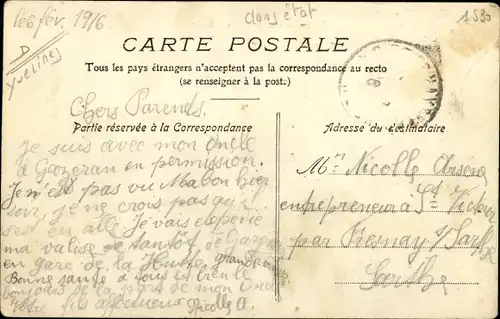 le 6 fév. 1916
dans état
D
Yvelines
CARTE POSTALE
Tous les pays étrangers n'acceptent pas la correspondance au recto
(se renseigner à la poste)
Chers Parents.
Partie réservée à la Correspondance
Adresse du destinataire
Je suis avec mon Oncle
à Gazeran en permission.
Je n'est pas vu Mabon hier
soir, je ne crois pas qu'il
s'est en allé Je vais
ma valise de Gazeran
en gare de la Hutte
Bonne santé à tous
bonjours de la part de mon Oncle
Votre fils affectueux Nicolle A.
Mr Nicolle Arsène
entrepreneur à St Victeur
par Fresnay s/ Sarthe
Sarthe